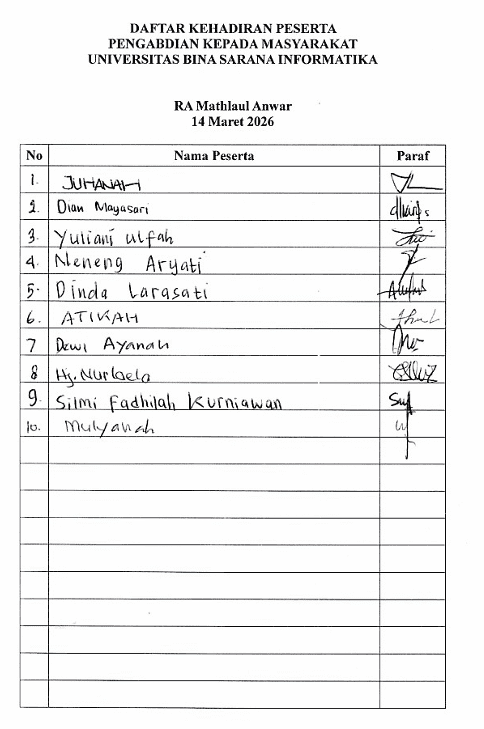 DAFTAR KEHADIRAN PESERTA
PENGABDIAN KEPADA MASYARAKAT
UNIVERSITAS BINA SARANA INFORMATIKA
RA Mathlaul Anwar
14 Maret 2026
No Nama Peserta Paraf
1. JUHANAH
2. Dian Mayasari
3. Yuliani ulfah
4. Neneng Aryati
5. Dinda Larasati
6. ATIKAH
7 Dewi Ayanah
8 Hj. Nurlaela
9. Silmi Fadhilah Kurniawan
10. Mulyanah